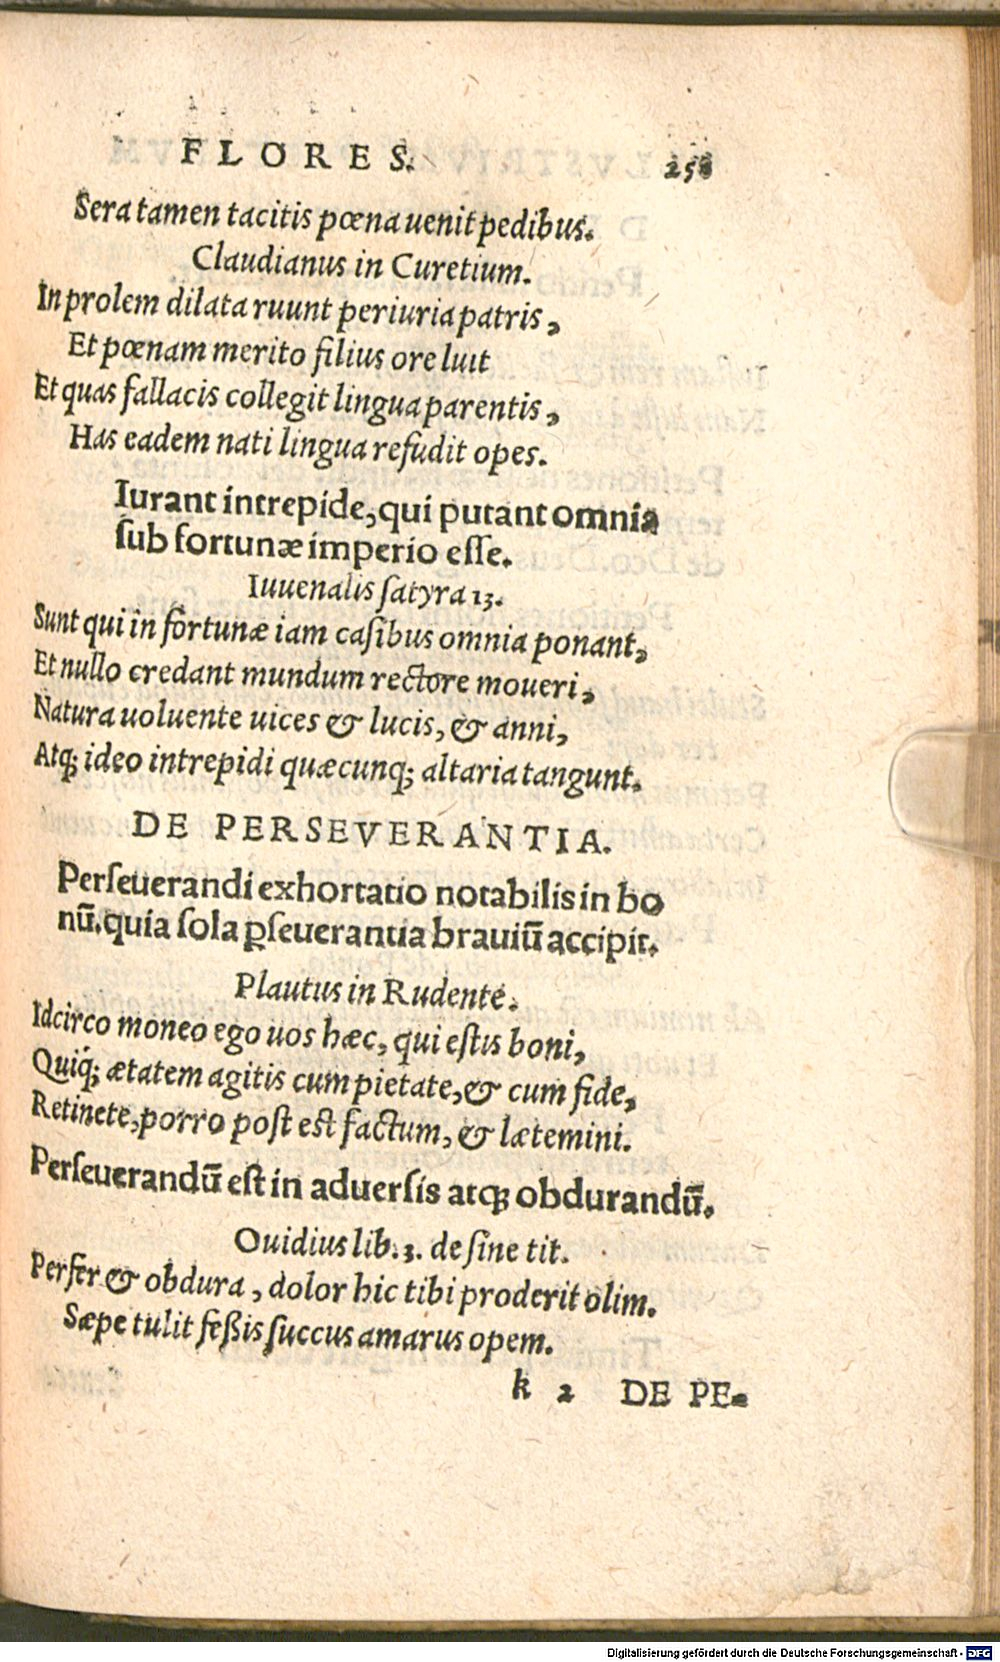 FLORES. 258
Sera tamen tacitis pœna uenit pedibus.
Claudianus in Curetium.
In prolem dilata ruunt periuria patris,
Et pœnam merito filius ore luit
Et quas fallacis collegit lingua parentis,
Has eadem nati lingua refudit opes.
Iurant intrepide, qui putant omnia
ſub fortunæ imperio eſſe.
Iuuenalis ſatyra 13.
Sunt qui in fortunæ iam caſibus omnia ponant,
Et nullo credant mundum rectore moueri,
Natura uoluente uices & lucis, & anni,
Atq; ideo intrepidi quæcunq; altaria tangunt.
DE PERSEVERANTIA.
Perſeuerandi exhortatio notabilis in bo
nū. quia ſola ꝑſeuerantia brauiū accipit.
Plautus in Rudente.
Idcirco moneo ego uos hæc, qui eſtis boni,
Quiq́; ætatem agitis cum pietate, & cum fide,
Retinete, porro poſt est factum, & lætemini.
Perſeuerandū eſt in aduerſis atq; obdurandū.
Ouidius lib. 3. de ſine tit.
Perfer & obdura, dolor hic tibi proderit olim.
Sæpe tulit feßis ſuccus amarus opem.
k 2 DE PE-
Digitalisierung gefördert durch die Deutsche Forschungsgemeinschaft - DFG